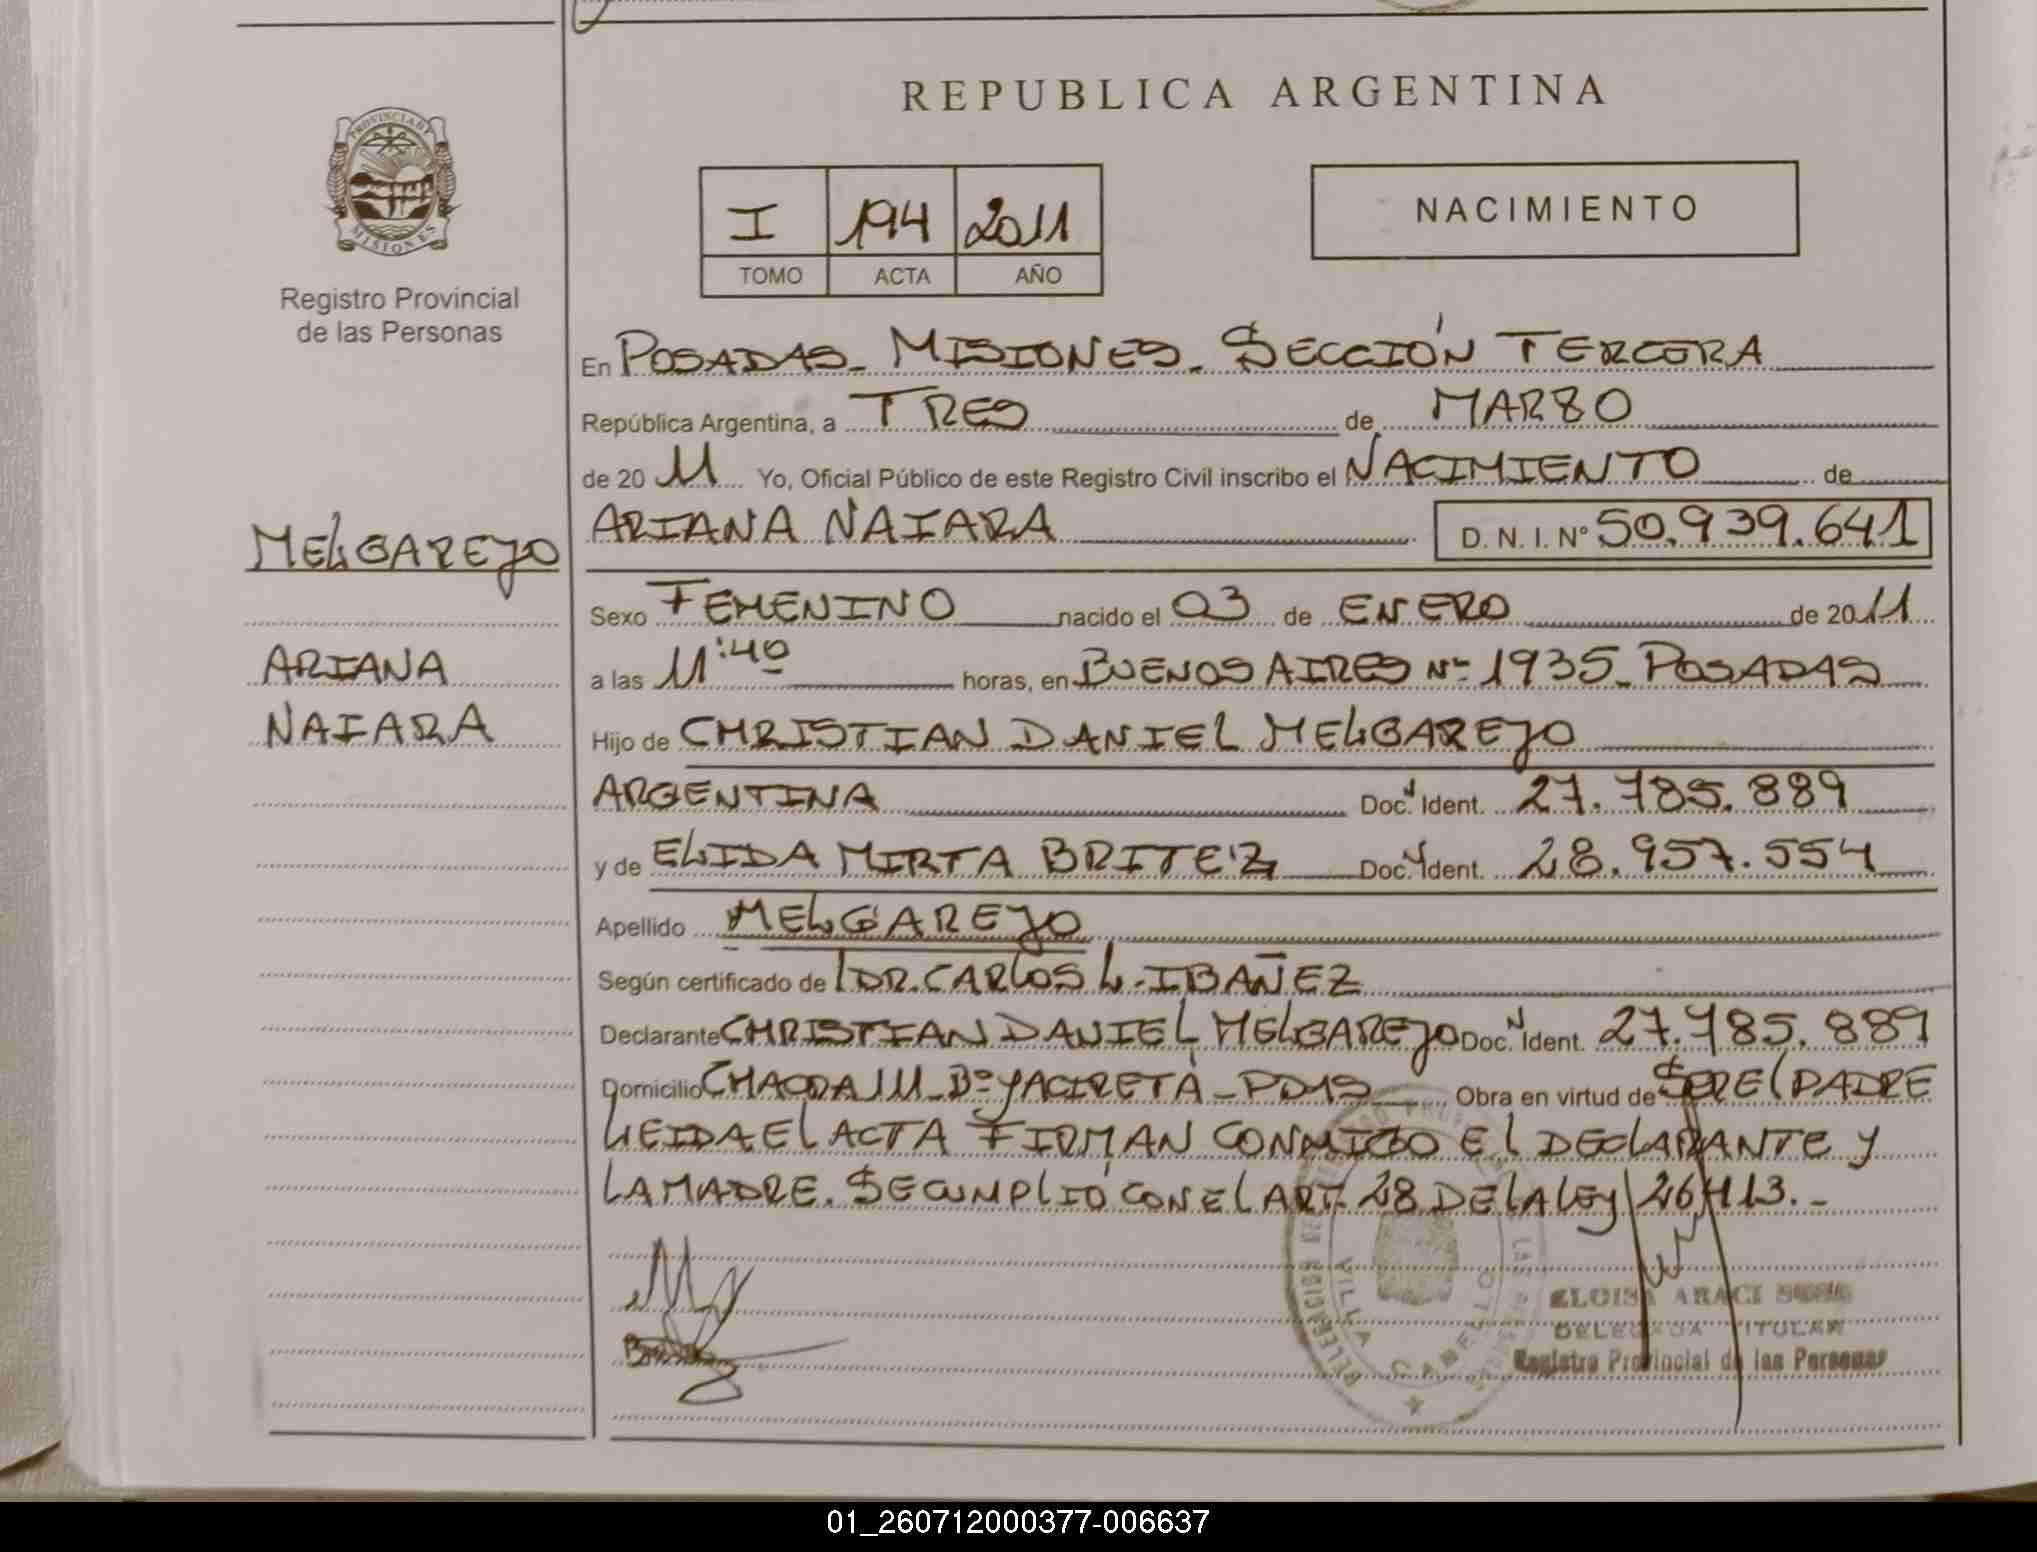 REPUBLICA ARGENTINA
PROVINCIA DE
MISIONES
Registro Provincial
de las Personas
I 194 2011
TOMO ACTA AÑO
NACIMIENTO
En POSADAS_ MISIONES_ SECCIÓN TERCERA
República Argentina, a TRES de MARZO
de 20 11 Yo, Oficial Público de este Registro Civil inscribo el NACIMIENTO de
MELGAREJO
ARIANA NAIARA D. N. I. Nº 50.939.641
Sexo FEMENINO nacido el 03 de ENERO de 2011
ARIANA
a las 11:40 horas, en BUENOS AIRES Nº 1935_ POSADAS
NAIARA
Hijo de CHRISTIAN DANIEL MELGAREJO
ARGENTINA Doc. Ident. 27.785.889
y de ELIDA MIRTA BRITEZ Doc. Ident. 28.957.554
Apellido MELGAREJO
Según certificado de DR. CARLOS L. IBAÑEZ
Declarante CHRISTIAN DANIEL MELGAREJO Doc. Ident. 27.785.889
Domicilio Bº YACIRETÁ_ PDAS_ Obra en virtud de SER EL PADRE
LEIDA EL ACTA FIRMAN CONMIGO EL DECLARANTE Y
LA MADRE. SE CUMPLIÓ CON EL ART. 28 DE LA LEY 26.413._
VILLA CABELLO
ELOISA ARACI
DELEGADA TITULAR
Registro Provincial de las Personas
01_260712000377-006637